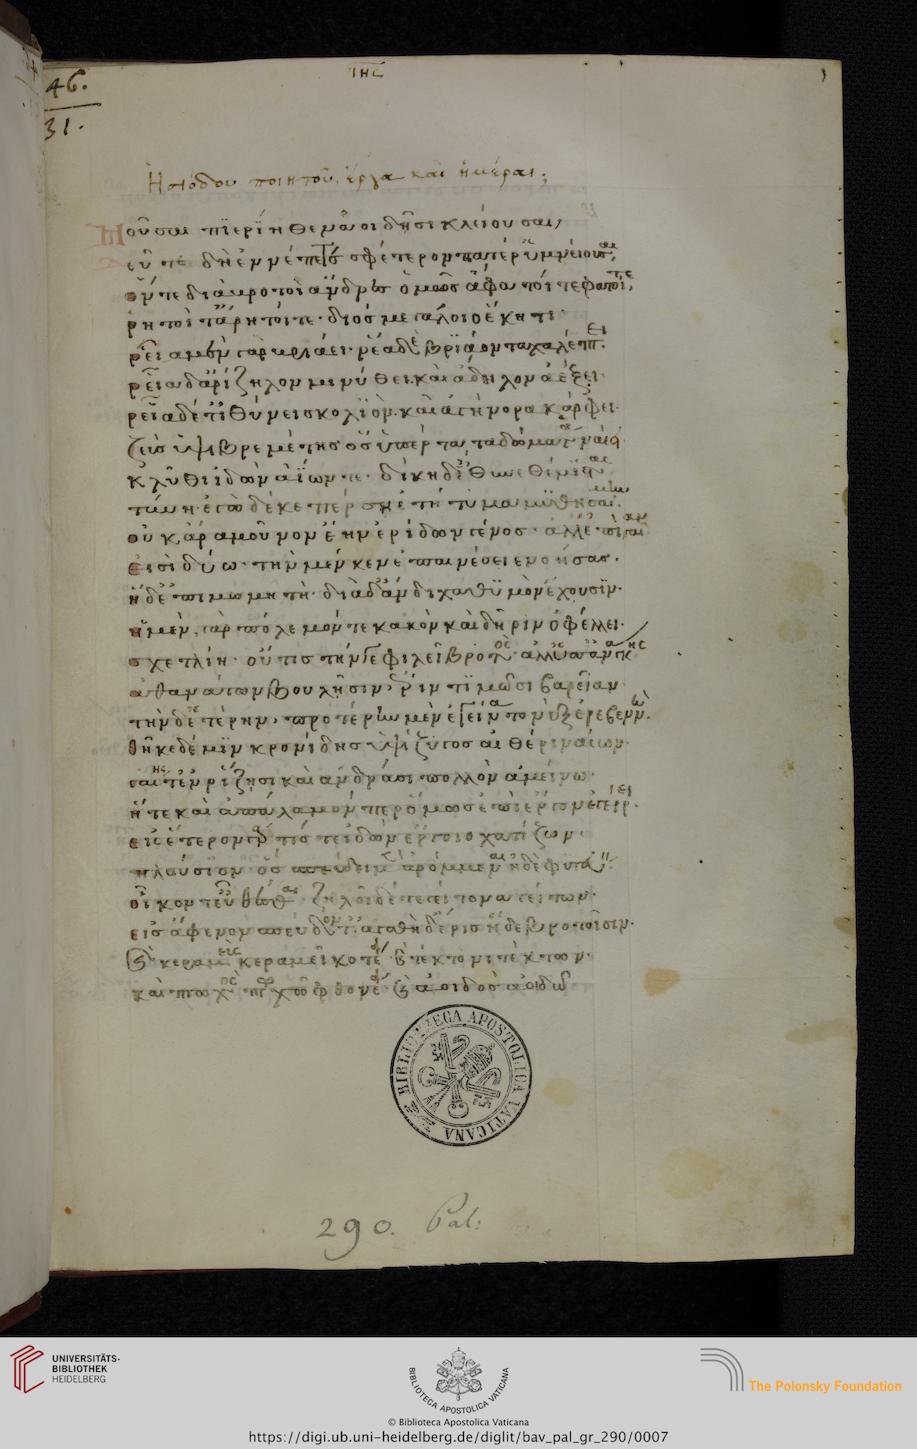 46.
31.
ιης
Ἡσιόδου ποιητοῦ, ἔργα καὶ ἡμέραι:
Μοῦσαι πϊερίηθεν ἀοιδῆσι κλείουσαι,
δὴ ἐννέπετε σφέτερον πατέρ' ὑμνείουσαι,
ὅν τε διὰ βροτοὶ ἄνδρες ὁμῶς ἄφατοί τε φατοί τε,
ῥητοί τ' ἄρρητοί τε· διὸς μεγάλοιο ἕκητι·
ῥεῖα μὲν γὰρ βριάει· ῥέα δὲ βριάοντα χαλέπτει·
ῥεῖα δ' ἀρίζηλον μινύθει· καὶ ἄδηλον ἀέξει·
ῥεῖα δέ τ' ἰθύνει σκολϊὸν· καὶ ἀγήνορα κάρφει·
ζεὺς ὑψιβρεμέτης ὃς ὑπέρτατα δώματα ναίει·
κλῦθι ἰδὼν ἀΐων τε· δίκῃ δ' ἴθυνε θέμϊστας
τύνη· ἐγὼ δέ κε πέρσῃ ἐτήτυμα μυθησαίμην·
οὐκ ἄρα μοῦνον ἔην ἐρίδων γένος· ἀλλ' ἐπὶ γαῖαν
εἰσὶ δύω· τὴν μέν κεν ἐπαινέσειε νοήσας·
ἡ δ' ἐπιμωμητή· διὰ δ' ἄνδιχα θυμὸν ἔχουσϊν·
ἡ μὲν γὰρ πόλεμόν τε κακὸν καὶ δῆριν ὀφέλλει·
σχετλίη· οὔτις τήν γε φιλεῖ βροτός· ἀλλ' ὑπ' ἀνάγκης
ἀθανάτων βουλῇσιν, ἔριν τϊμῶσι βαρεῖαν·
τὴν δ' ἑτέρην, προτέρην μὲν ἐγείνατο νὺξ ἐρεβεννὴ·
θῆκε δέ μϊν κρονίδης ὑψίζυγος αἰθέρι ναίων·
γαίης τ' ἐν ῥίζῃσι καὶ ἀνδράσι πολλὸν ἀμείνω·
ἥτε καὶ ἀπάλαμόν περ ὅμως ἐπὶ ἔργον ἐγείρει·
εἰς ἕτερον γάρ τίς τε ἰδὼν ἔργοιο χατίζων·
πλούσϊον· ὃς σπεύδει μὲν ἀρόμμεναι ἠδὲ φυτεύειν·
οἶκόν τ' εὖ θέσθαι· ζηλοῖ δέ τε γείτονα γείτων·
εἰς ἄφενον σπεύδοντ'· ἀγαθὴ δ' ἔρις ἥδε βροτοῖσιν·
καὶ κεραμεὺς κεραμεῖ κοτέει· καὶ τέκτονι τέκτων·
καὶ πτωχὸς πτωχῶ φθονέει· καὶ ἀοιδὸς ἀοιδῶ
BIBLIOTECA APOSTOLICA VATICANA
290. Pal:
UNIVERSITÄTS-
BIBLIOTHEK
HEIDELBERG
BIBLIOTECA APOSTOLICA VATICANA
The Polonsky Foundation
© Biblioteca Apostolica Vaticana
https://digi.ub.uni-heidelberg.de/diglit/bav_pal_gr_290/0007